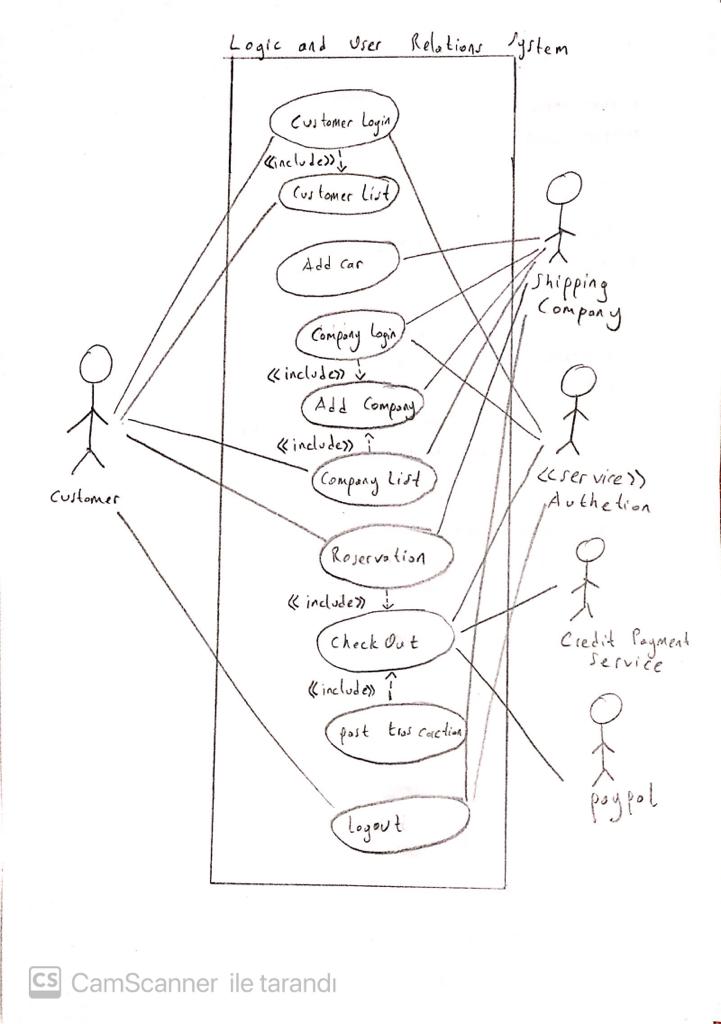 Logic and User Relations System
Customer Login
<<include>>
Customer List
Add Car
Company Login
<<include>>
Add Company
<<include>>
Company List
Roservation
<<include>>
Check Out
<<include>>
post
Logout
Customer
Shipping
Company
<<service>>
Authetion
Credit Payment
Service
paypal
CS CamScanner ile tarandı